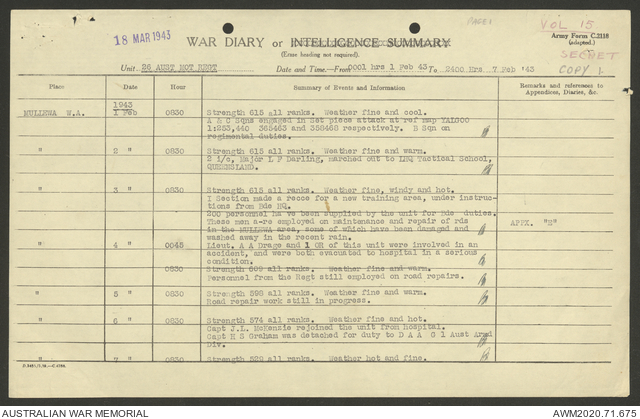 PAGE 1
VOL 15
18 MAR 1943
WAR DIARY or INTELLIGENCE SUMMARY
Army Form C.2118
(adapted.)
(Erase heading not required).
SECRET
Unit. 26 AUST MOT REGT Date and Time—From 0001 hrs 1 Feb 43 To 2400 Hrs 7 Feb '43
COPY 1.
Place Date Hour Summary of Events and Information Remarks and references to
Appendices, Diaries, &c.
1943
MULLEWA W.A. 1 Feb 0830 Strength 615 all ranks. Weather fine and cool.
A & C Sqns engaged in Set piece attack at ref map YALGOO
1:253,440 365463 and 358468 respectively. B Sqn on
regimental duties.
" 2 " 0830 Strength 615 all ranks. Weather fine and warm.
2 i/c, Major L F Darling, marched out to LHQ Tactical School,
QUEENSLAND.
" 3 " 0830 Strength 615 all ranks. Weather fine, windy and hot.
I Section made a recce for a new training area, under instruc-
tions from Bde HQ.
200 personnel ha ve been supplied by the unit for Bde duties.
These men a-re employed on maintenance and repair of rds APPX. "M"
in the MULLEWA area, some of which have been damaged and
washed away in the recent rain.
" 4 " 0045 Lieut. A A Drage and 1 OR of this unit were involved in an
accident, and were both evacuated to hospital in a serious
condition.
0830 Strength 609 all ranks. Weather fine and warm.
Personnel from the Regt still employed on road repairs.
" 5 " 0830 Strength 598 all ranks. Weather fine and warm.
Road repair work still in progress.
" 6 " 0830 Strength 574 all ranks. Weather fine and hot.
Capt J.L. McKenzie rejoined the unit from hospital.
Capt H S Graham was detached for duty to D A A G 1 Aust Armd
Div.
" 7 " 0830 Strength 529 all ranks. Weather hot and fine.
AUSTRALIAN WAR MEMORIAL AWM2020.71.675